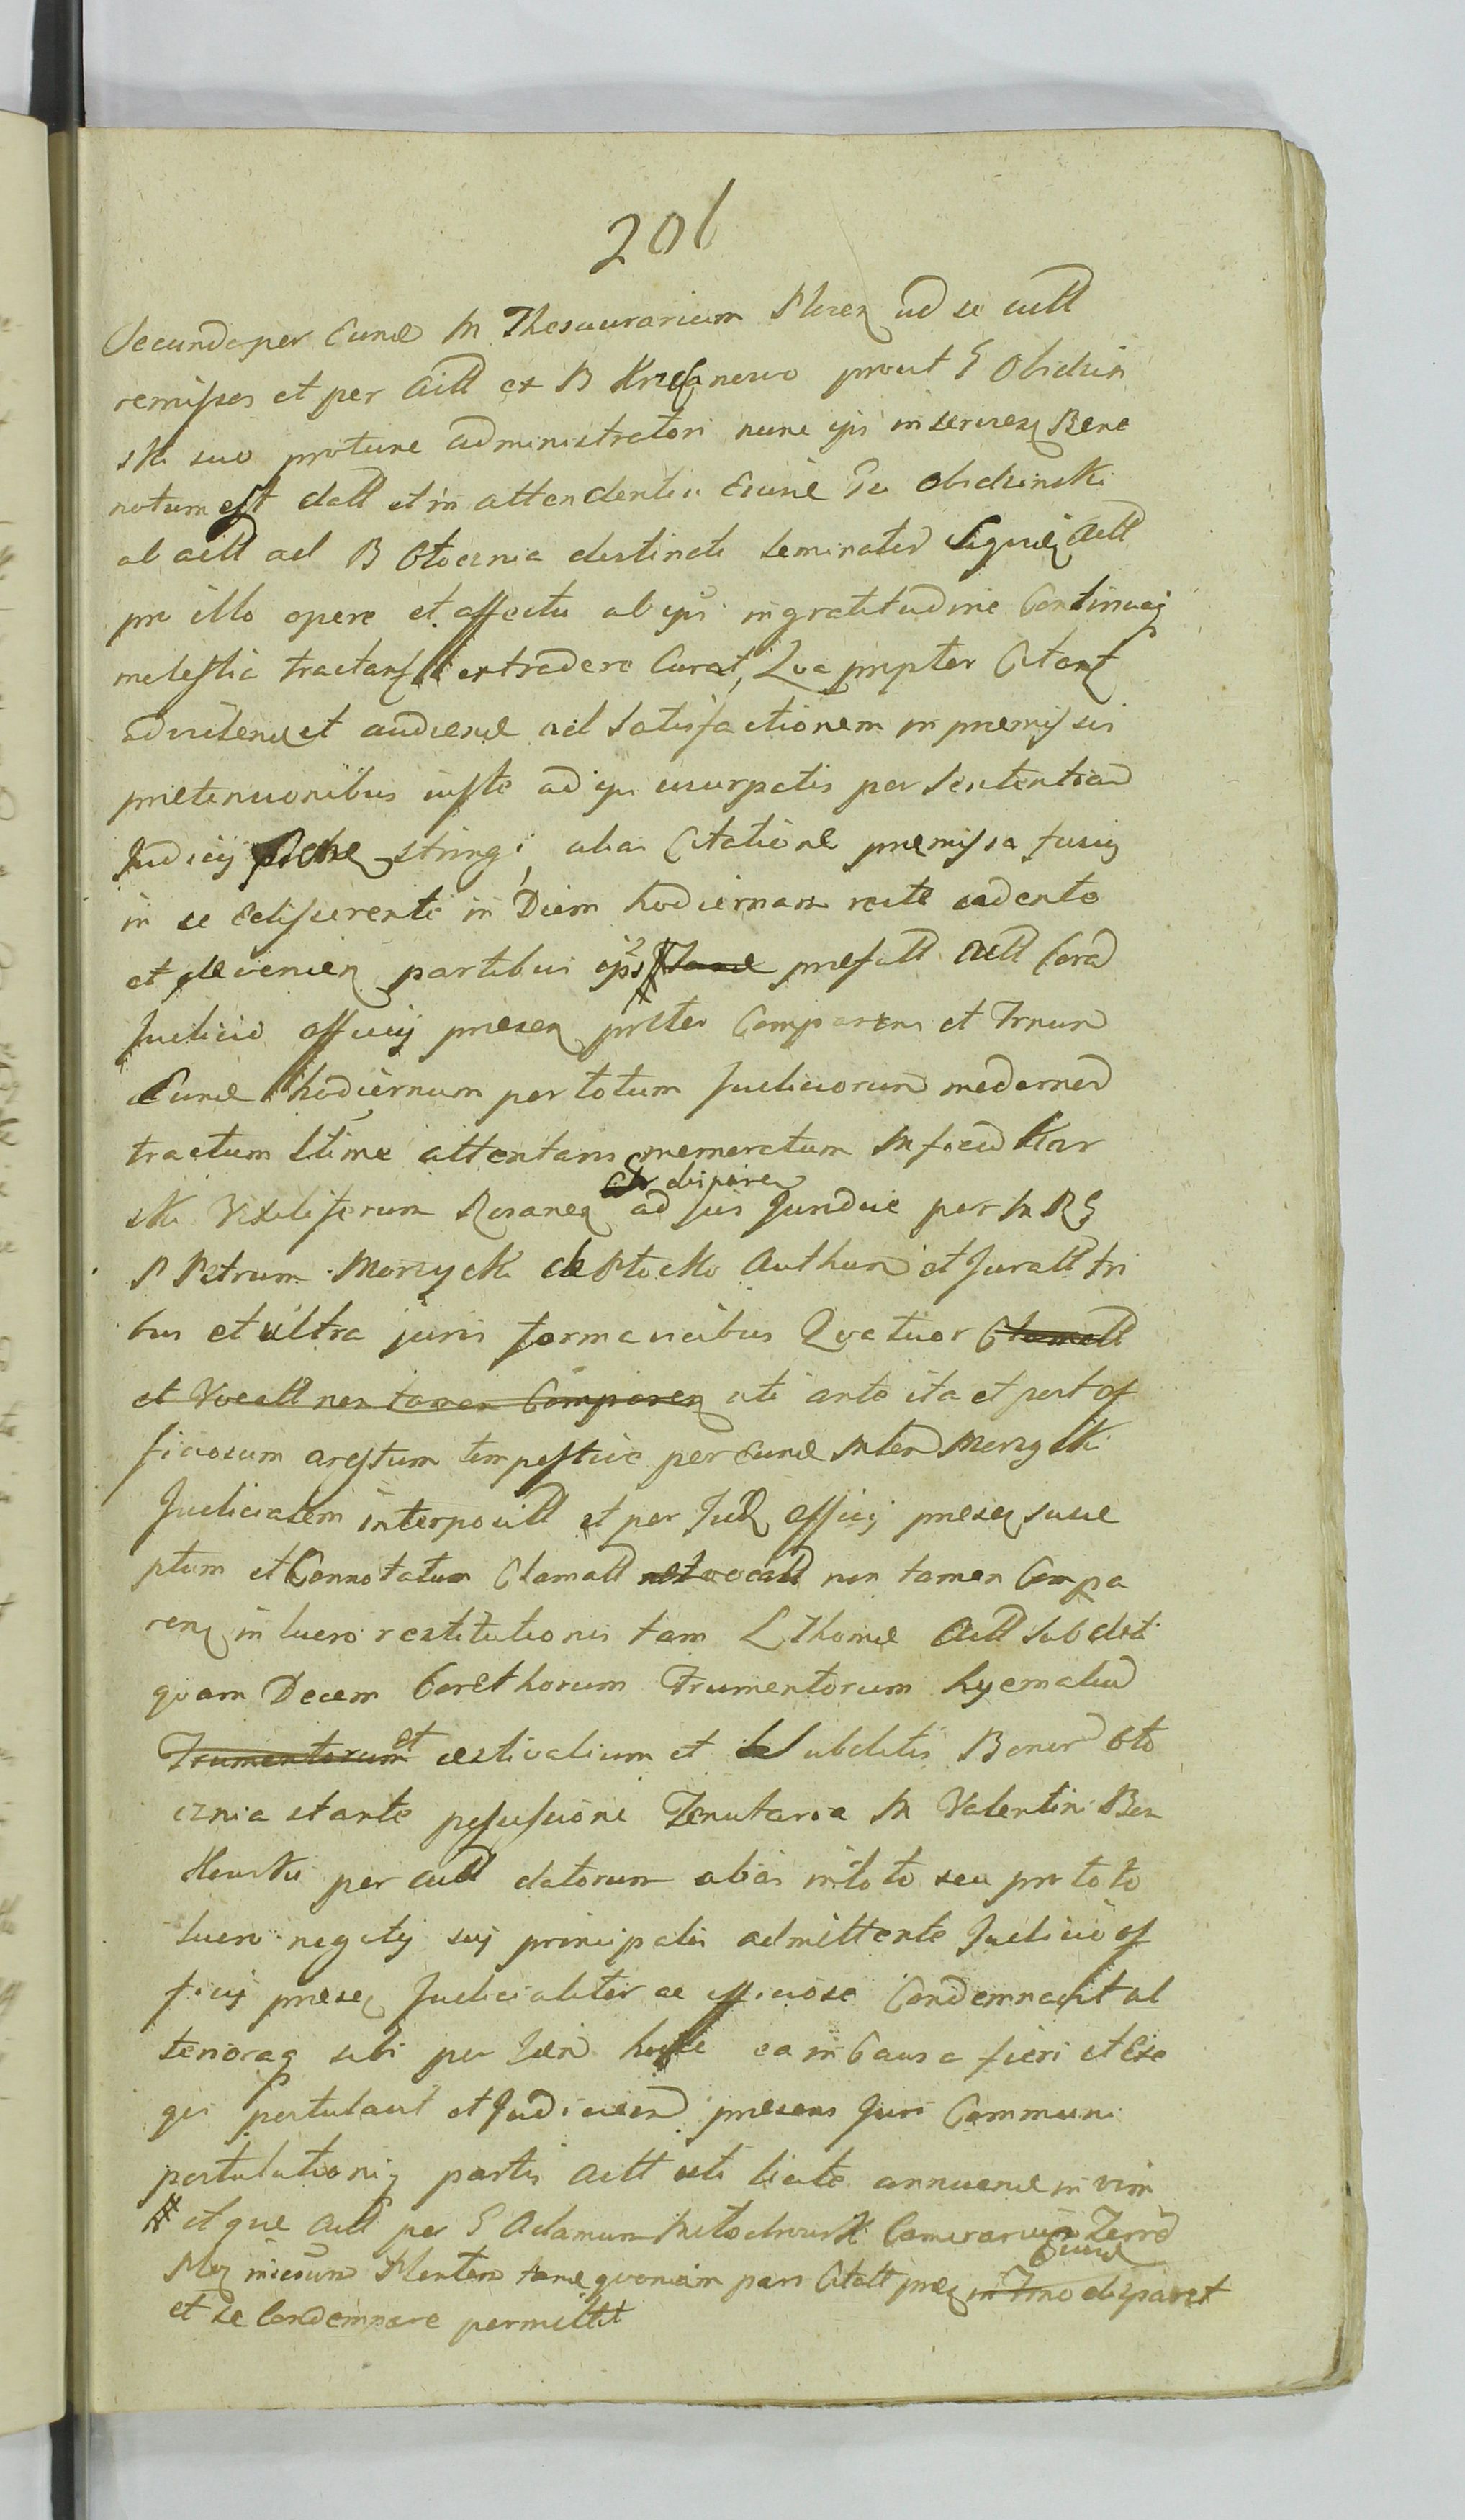 201
Secundo per Eund M Thesaurarium Plocen ad se actt
remissos et per Actt ex B prout G Obidzin
ski suo protunc administratori nunc ipi inservien Bene
notum est datt et in attendentia Eiund Gi Obidzinski
ab actt ad B Otocznia destinata seminatur Actt
pro illo opere et affectu ab ipi ingratitudine
molestia tractans extradere curat, Qua propter Citant
ad vidend et audiend ad satisfactionem in premissis
prætensionibus iuste ad ipi usurpatis per Sententiam
Judicij stringi, alias Citatione premissa fusius
in se edisserenti in Diem hodiernam recte cadente
et deveniens partibus ips # Jane prefatt Actt Coram
Judicio officij presen prter Comparens et Trnum
Eund hodiernum per totum Judiciorum modernor
tractum ltime attentans memoratum M Kar
ski Vexiliferum Rosanen disparen ad jus Juridice per M RG
P Petrum Morzycki de Ptocko Authum et Juratt tri
bus et ultra juris formæ vicibus Quatuor Clamatt
et Vocatt non tamen Comparen uti ante ita et post of
ficiosum arestum tempestive per Eund Mten Morzycki
Judicialem interpositt et per Jud officij presen susce
ptum et Connotatum Clamatt et vocatt non tamen Compa
ren in lucro restitutionis tam L Thomæ Actt Subditi
quam Decem Corethorum Frumentorum hyemalium
Frumentorum et æstivalium et Subditis Bonor Oto
cznia stante possessione Tenutaria M Valentini Ben
kowski per actt datorum alias in toto seu pro toto
lucro negotij sui principalis admittente Judicio of
ficij presen Judicialiter ac officiose Condemnavit ul
terioraq sibi per Jud ea in Causa fieri et Exe
qui postulavit et Judicium presens Juri Communi
postulationiq partis Actt uti licitæ annuend in vim
# et que Actt per G Adamum Camerarium Terræ
quoniam pars Citatt in Trno Eund disparet
et se Condemnare permittit